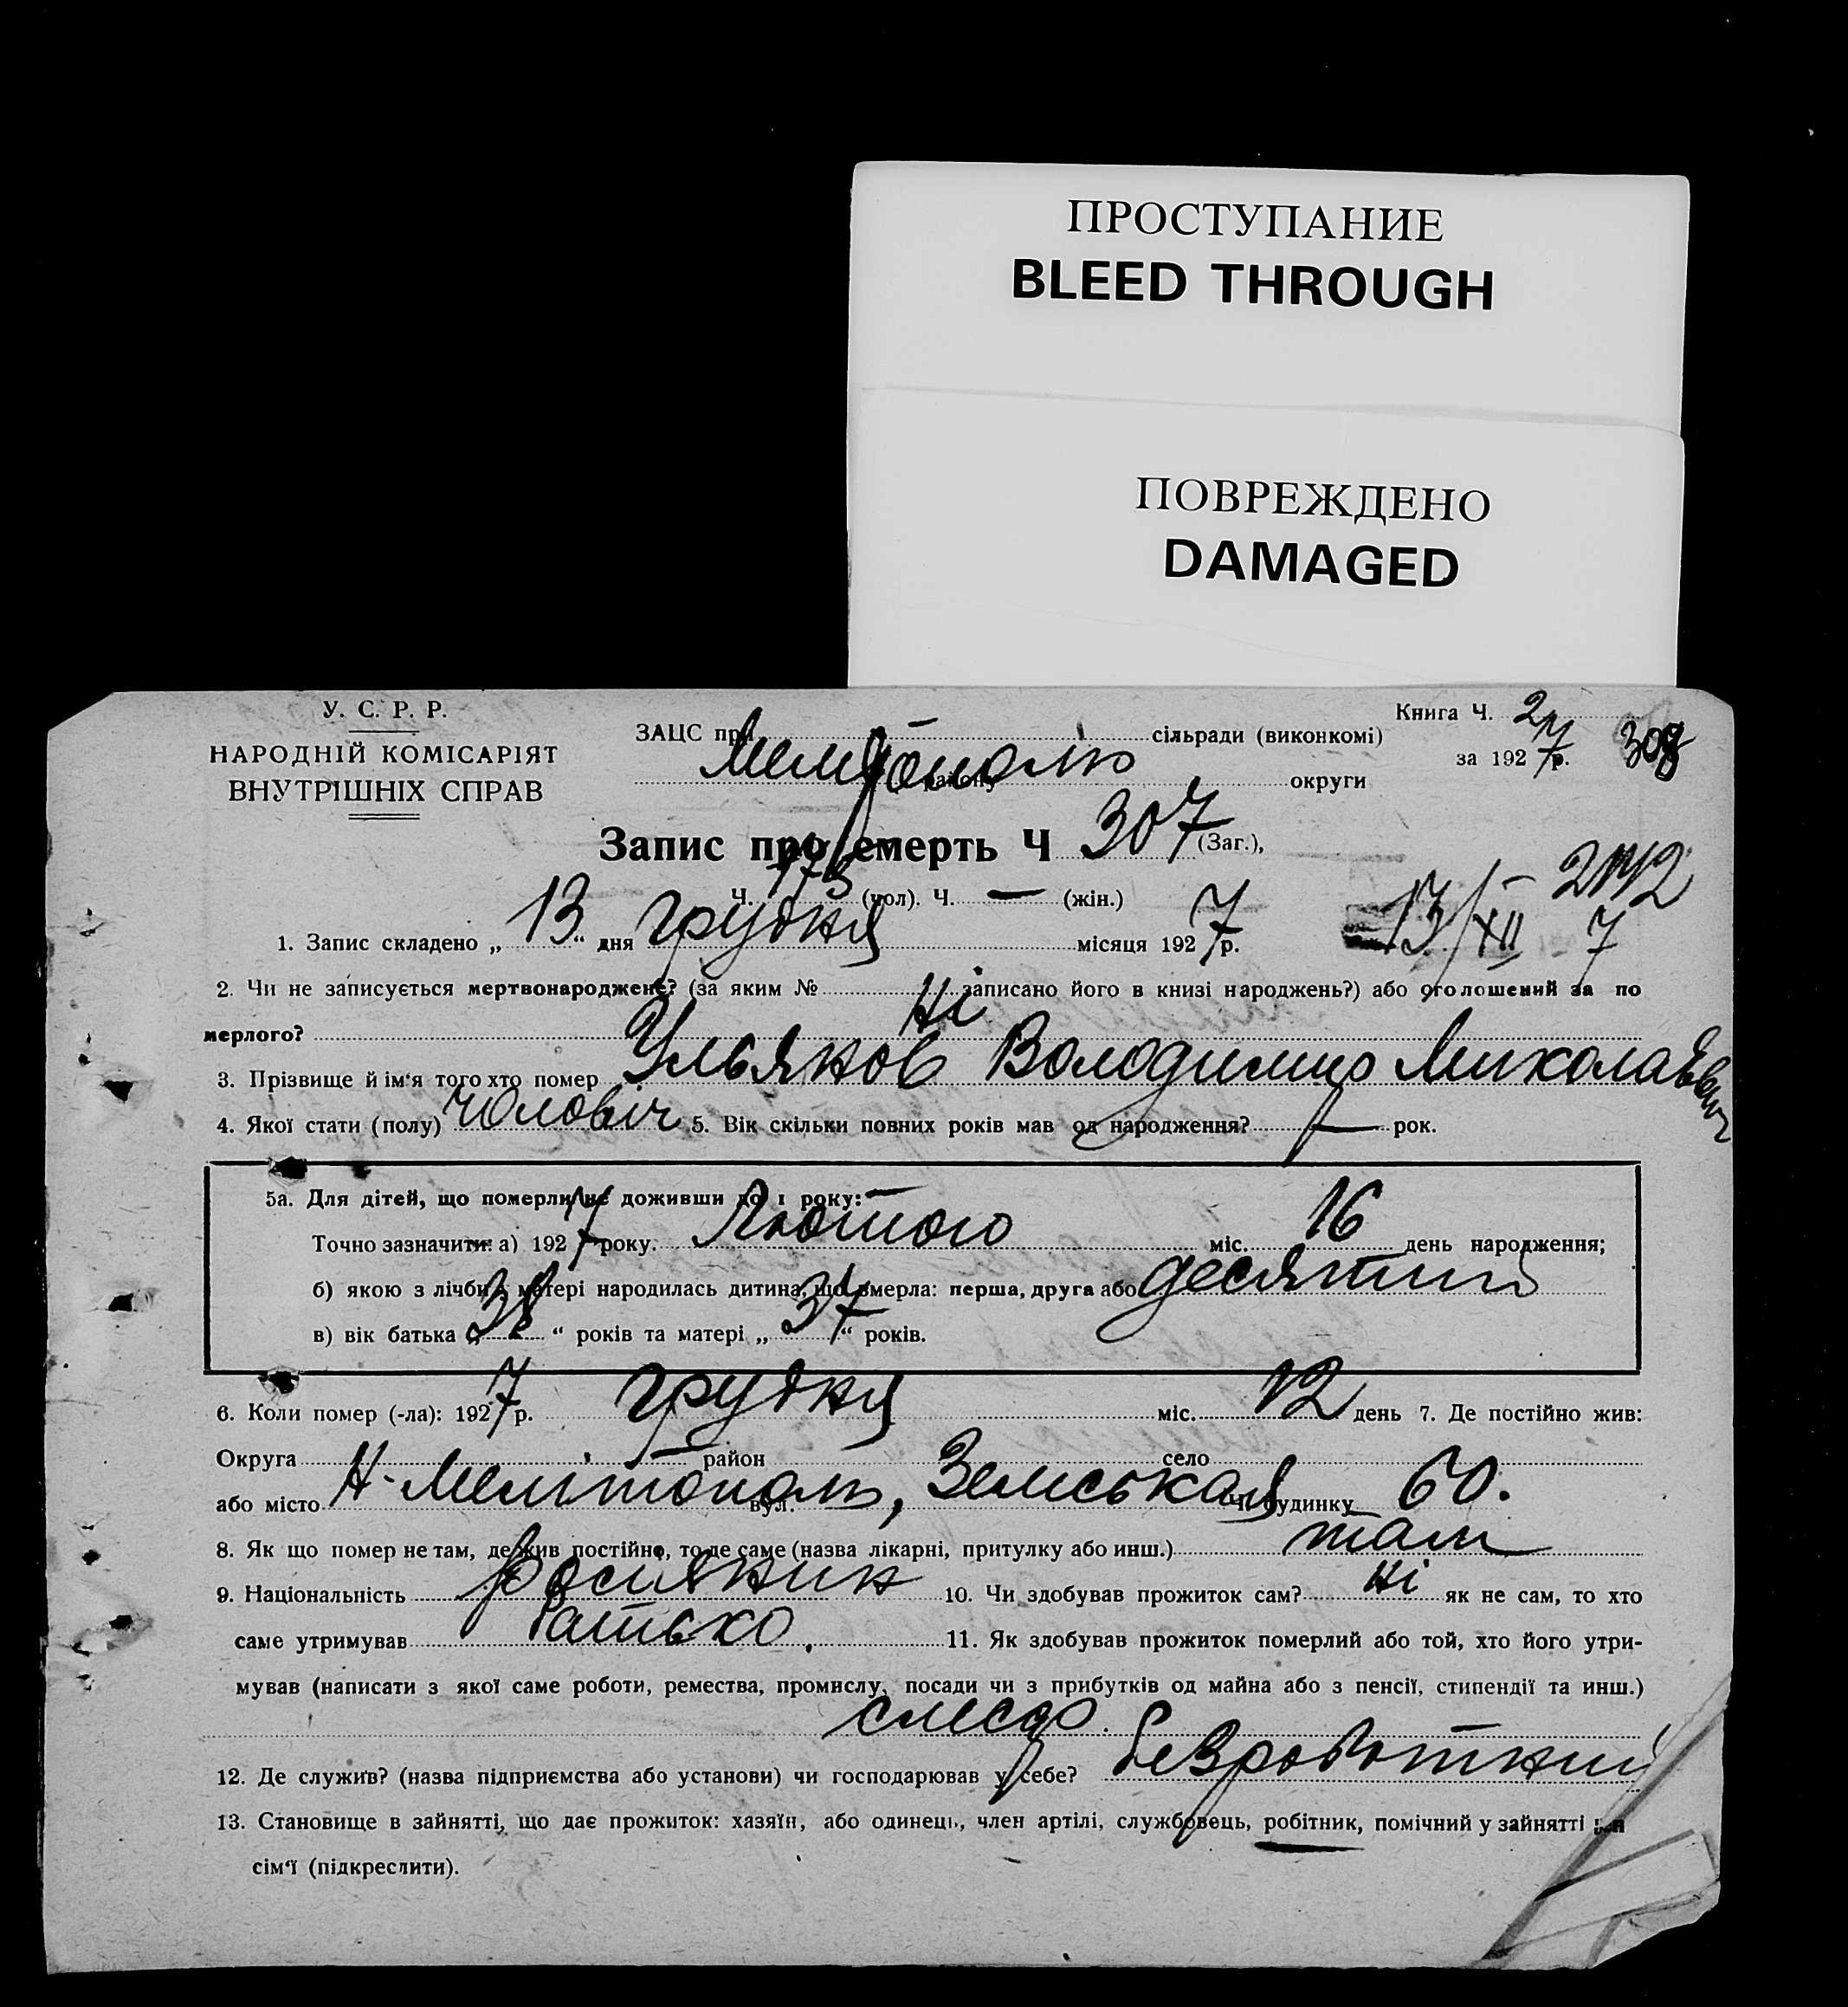 ПРОСТУПАНИЕ
BLEED THROUGH
ПОВРЕЖДЕНО
DAMAGED
У. С. Р. Р.
НАРОДНІЙ КОМІСАРІЯТ
ВНУТРІШНІХ СПРАВ
Книга Ч. 27 308
за 1927 р.
ЗАЦС при сільради (виконкомі)
району округи
Запис про смерть Ч 307 (Заг.),
Ч. 175 (чол). Ч. — (жін.)
13/XII 7
1. Запис складено „ 13 “ дня грудня місяця 1927 р.
2. Чи не записується мертвонароджене? (за яким № записано його в книзі народжень?) або оголошений за по
мерлого? Ні
3. Прізвище й ім‘я того хто помер Ульянов Володимир Миколаєвич
4. Якої стати (полу) чоловіч 5. Вік скільки повних років мав од народження? — рок.
5а. Для дітей, що померли не доживши до 1 року:
Точно зазначити: а) 1927 року. Лютого міс. 16 день народження;
б) якою з лічби у матері народилась дитина, що вмерла: перша, друга або десятий
в) вік батька „ 38 “ років та матері „ 37 “ років.
6. Коли помер (-ла): 1927 р. грудня міс. 12 день 7. Де постійно жив:
Округа район село
або місто Н-Мелітополь, вул. Земськая Ч. будинку 60.
8. Як що помер не там, де жив постійно, то де саме (назва лікарні, притулку або инш.) там
9. Національність росіянин 10. Чи здобував прожиток сам? Ні як не сам, то хто
саме утримував батько. 11. Як здобував прожиток померлий або той, хто його утри-
мував (написати з якої саме роботи, ремества, промислу, посади чи з прибутків од майна або з пенсії, стипендії та инш.)
слесар.
12. Де служив? (назва підприємства або установи) чи господарював у себе? безроботний
13. Становище в зайнятті, що дає прожиток: хазяїн, або одинець, член артілі, службовець, робітник, помічний у зайнятті
сім‘ї (підкреслити).